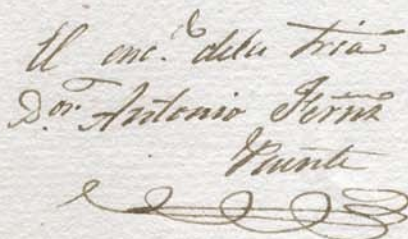 El enc.do dela Sria
Dor. Antonio Fernz
Puente